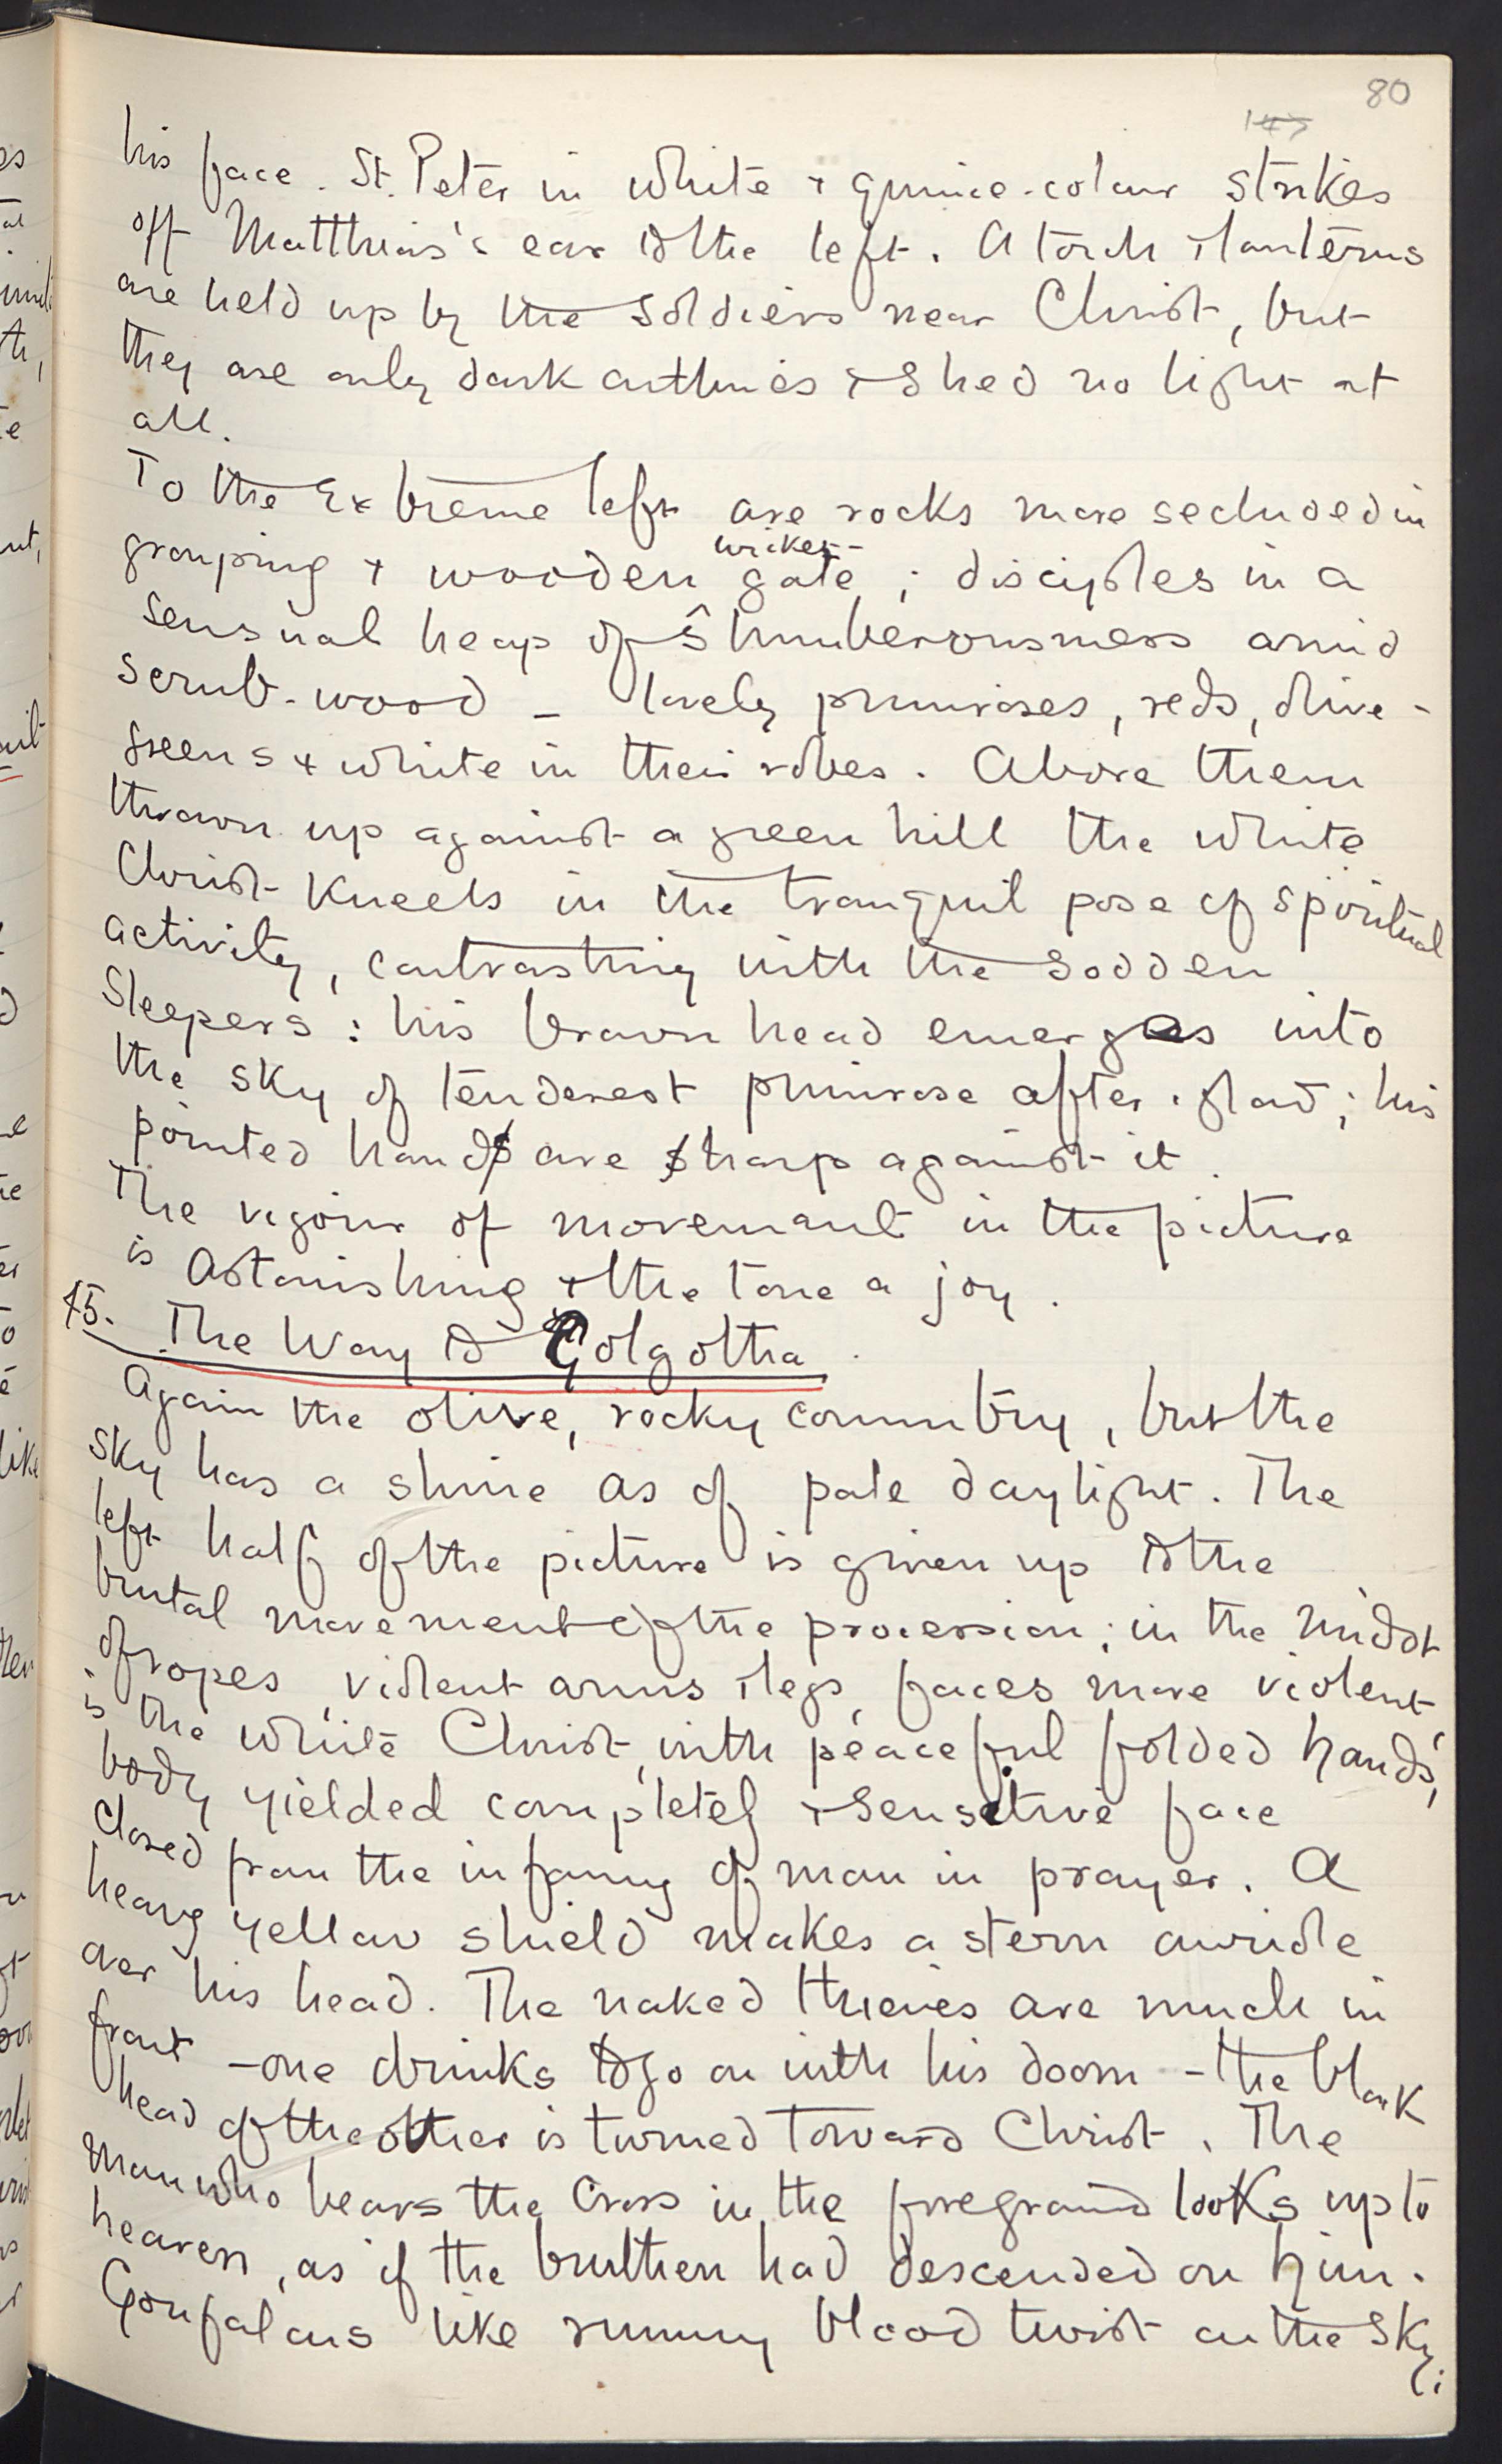 80
his face. St. Peter in white & quince-colour strikes
off Matthias's ear to the left. A torch & lanterns
are held up by the soldiers near Christ, but
they are only dark outlines & shed no light at
all.
To the Extreme left are rocks more secluded in
wicket-
grouping & wooden gate; disciples in a
sensual heap of slumberousness amid
scrub-wood – lovely primroses, reds, olive-
greens & white in their robes. Above them
thrown up against a green hill the white
Christ kneels in the tranquil pose of spiritual
activity, contrasting with the sodden
Sleepers: his brown head emerges into
the sky of tenderest primrose after-glad; his
pointed hands are sharp against it.
The vigour of movement in the picture
is astonishing & the tone a joy.
15. The Way to Golgotha.
Again the olive, rocky country, but the
sky has a shine as of pale daylight. The
left half of the picture is given up to the
brutal movement of the procession; in the midst
of ropes, violent arms & legs, faces more violent
is the white Christ, with peaceful folded hands,
body yielded completely & sensitive face
closed from the infamy of man in prayer. A
heavy yellow shield makes a stern aureole
over his head. The naked thieves are much in
front – one drinks to go on with his doom – the black
head of the other is turned toward Christ. The
man who bears the Cross in the foreground looks up to
heaven, as if the burthen had descended on him.
Gonfalons like running blood twist on the sky;